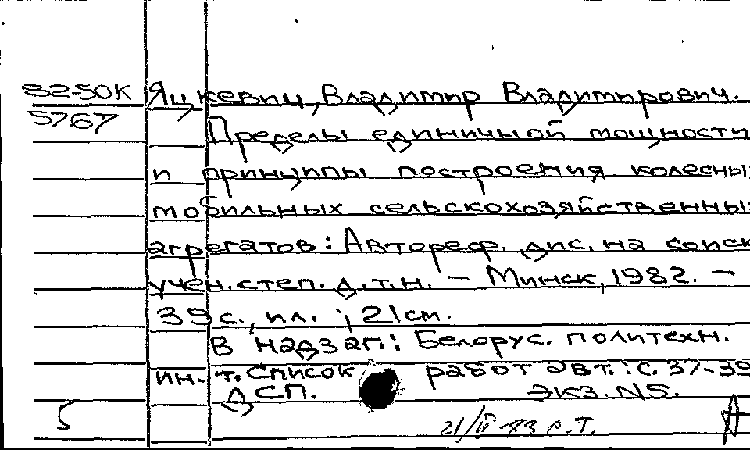 82-50К Яцкевич, Владимир Владимирович.
5767
Пределы единичной мощности
и принципы построения колесны
мобильных сельскохозяйственны
агрегатов: Автореф. дис. на соиск
учен. степ. д.т.н. – Минск, 1982. –
39 с., ил. ; 21 см.
В надзаг: Белорус. политехн.
ин-т. Список работ авт.: с. 37-39
ДСП. Экз. N5.
5